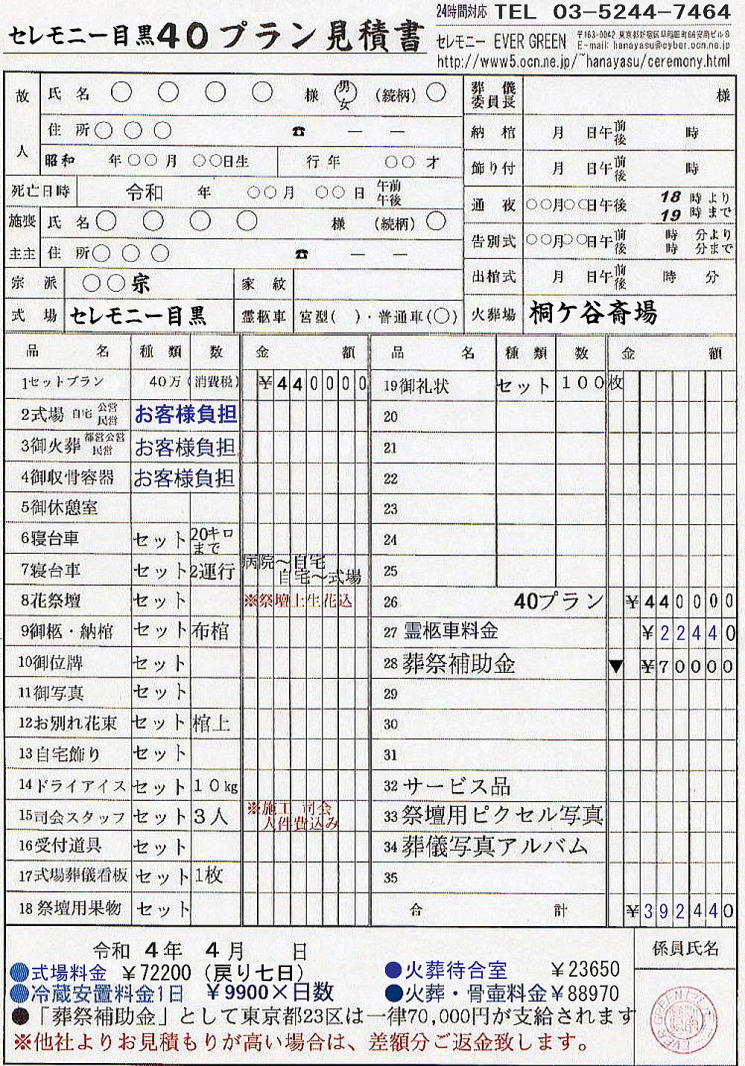 セレモニー目黒40プラン見積書
24時間対応 TEL 03-5244-7464
セレモニー EVER GREEN
E-mail: hanayasu@cyber.ocn.ne.jp
http://www5.ocn.ne.jp/~hanayasu/ceremony.html
故人 氏名 ○ ○ ○ ○ 様 男女 (続柄) ○
住所 ○ ○ ○ ☎ ― ―
昭和 年○○月 ○○日生 行年 ○○才
死亡日時 令和 年 ○○月 ○○日 午前午後
施主 喪主 氏名 ○ ○ ○ ○ 様 (続柄) ○
住所 ○ ○ ○ ☎ ― ―
宗派 ○○宗 家紋
式場 セレモニー目黒 霊柩車 宮型( )・普通車(○)
葬儀委員長 様
納棺 月 日午前後 時
飾り付 月 日午前後 時
通夜 ○○月○○日午後 18時より 19時まで
告別式 ○○月○○日午前後 時 分より 時 分まで
出棺式 月 日午前後 時 分
火葬場 桐ケ谷斎場
品名 種類 数 金額
1セットプラン 40万(消費税) ¥440000
2式場 自宅 公営 民営 お客様負担
3御火葬 都営公営 民営 お客様負担
4御収骨容器 お客様負担
5御休憩室
6寝台車 セット 20キロまで
7寝台車 セット 2運行 病院～自宅 自宅～式場
8花祭壇 セット ※祭壇上生花込
9御柩・納棺 セット 布棺
10御位牌 セット
11御写真 セット
12お別れ花束 セット 棺上
13自宅飾り セット
14ドライアイス セット 10kg
15司会スタッフ セット 3人 ※施工 司会 人件費込み
16受付道具 セット
17式場葬儀看板 セット 1枚
18祭壇用果物 セット
品名 種類 数 金額
19御礼状 セット 100枚
20
21
22
23
24
25
26 40プラン ¥440000
27 霊柩車料金 ¥22440
28 葬祭補助金 ▼ ¥70000
29
30
31
32 サービス品
33 祭壇用ピクセル写真
34 葬儀写真アルバム
35
合計 ¥392440
令和 4年 4月 日
●式場料金 ¥72200 (戻り七日)
●冷蔵安置料金1日 ¥9900×日数
●火葬待合室 ¥23650
●火葬・骨壺料金¥88970
●「葬祭補助金」として東京都23区は一律70,000円が支給されます
※他社よりお見積もりが高い場合は、差額分ご返金致します。
係員氏名
EVER GREEN